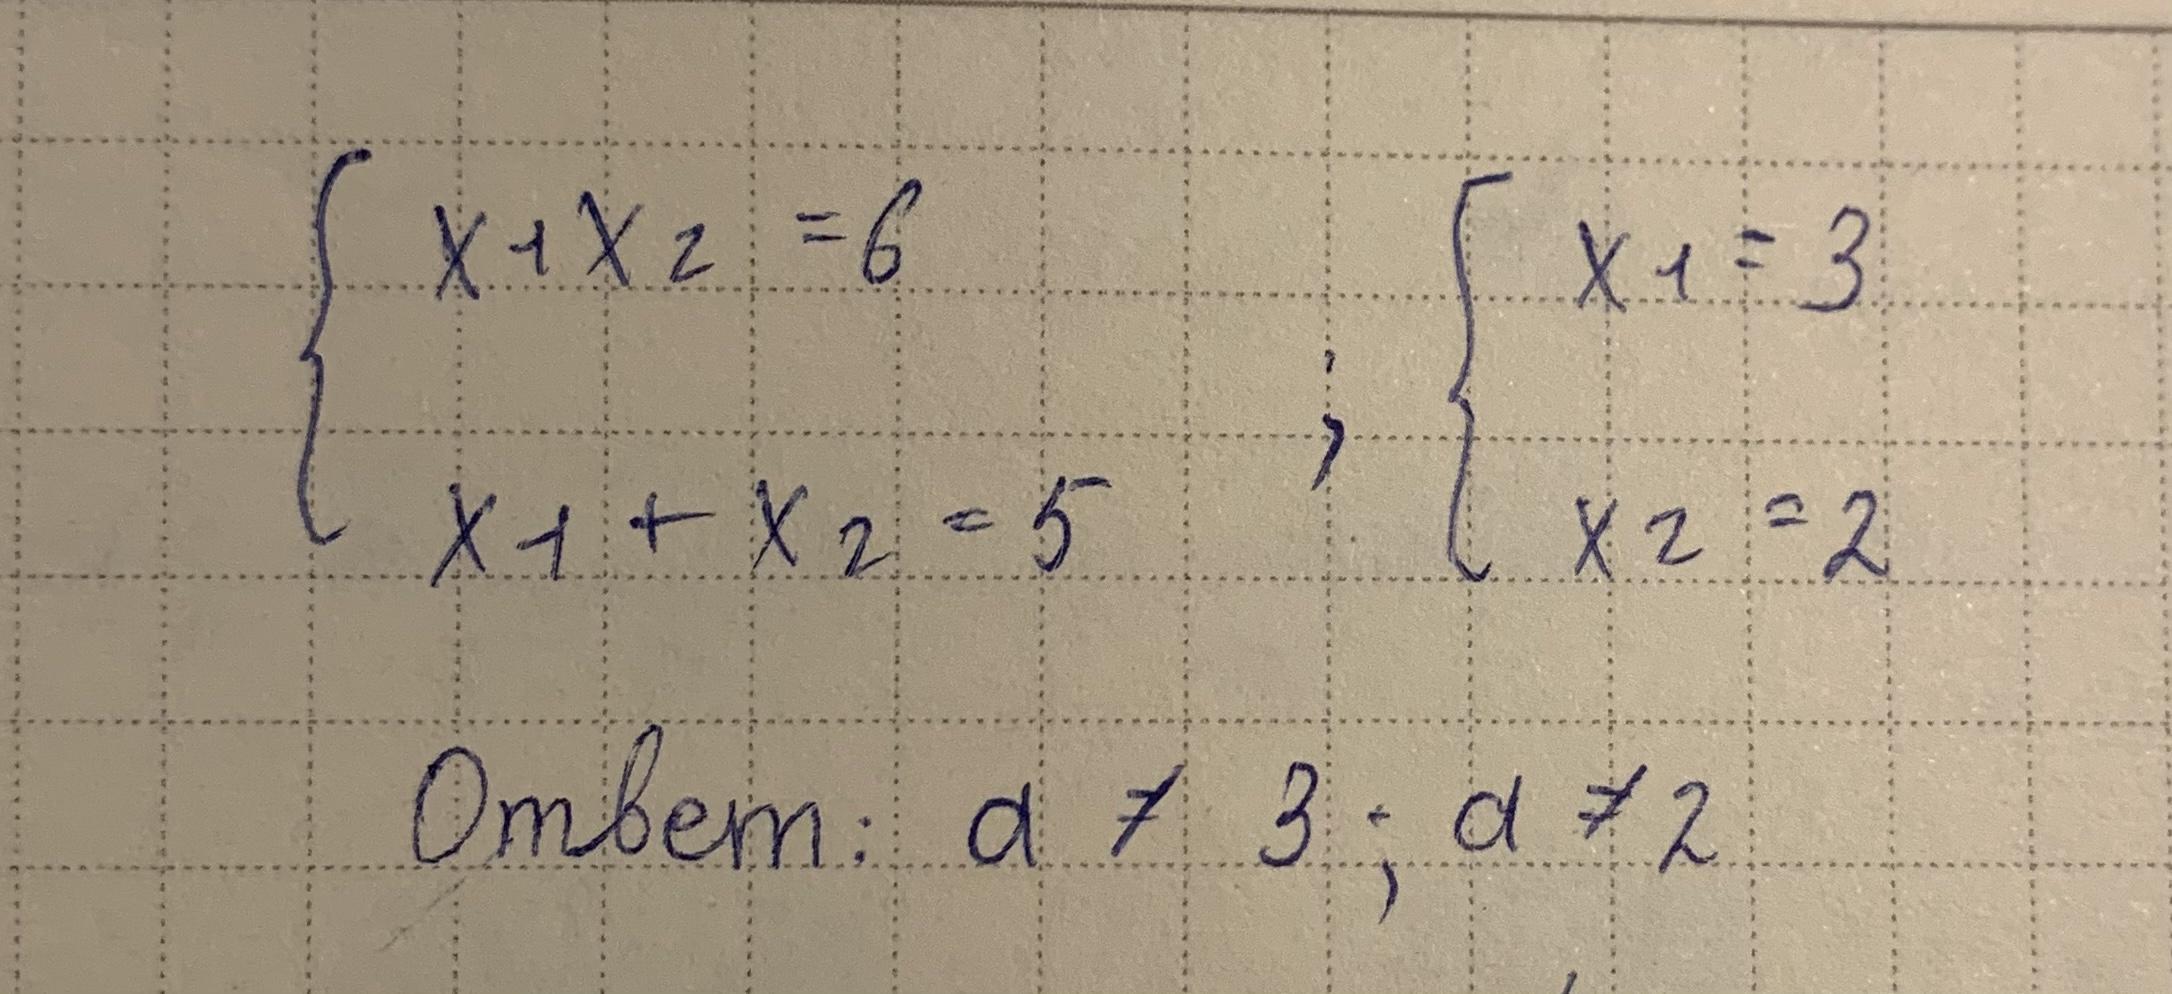 x1x2 = 6
x1 + x2 = 5
;
x1 = 3
x2 = 2
Ответ: a ≠ 3; a ≠ 2